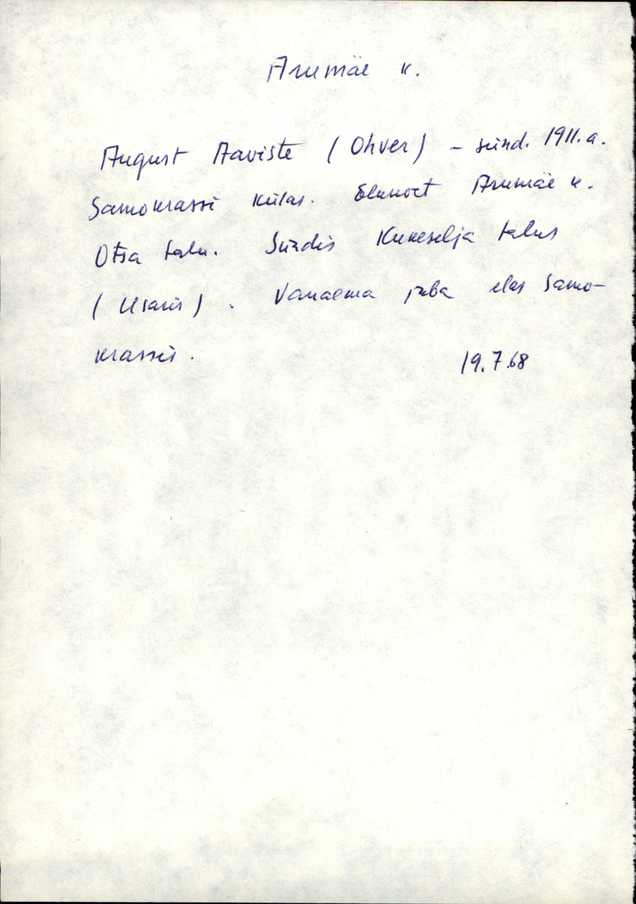 Arumäe k.
August Aaviste (Ohver) – sünd. 1911. a.
Samokrassi külas. Elukoet Arumäe k.
Otsa talu. Sündis Kukeselja talus
( ). Vanaema juba elas Samo-
krassis.
19.7.68